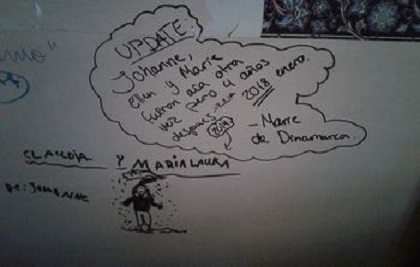 UPDATE:
Johanne,
Ellen y Marie
fueron acá otra
vez pero 4 años
después en 2018 enero.
2014
- Marie
de Dinamarca.
CLAUDIA Y MARIALAURA